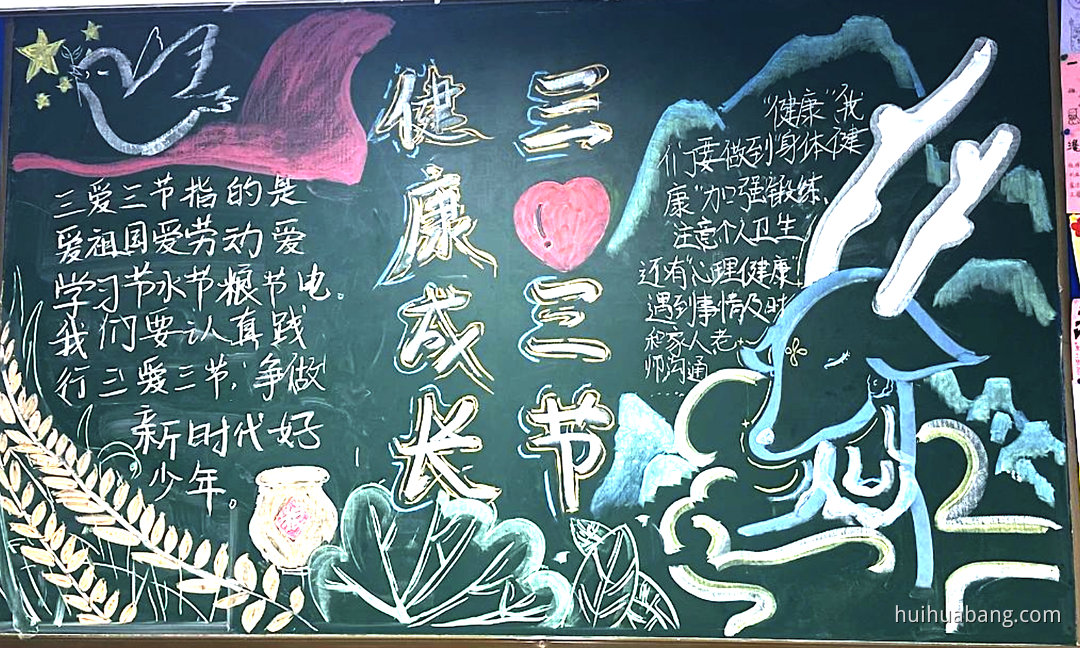 三❤三节
健康成长
三爱三节指的是
爱祖国爱劳动爱
学习节水节粮节电。
我们要认真践
行三爱三节,争做
新时代好
少年。
"健康"我
们要做到"身体健
康"加强锻练、
注意个人卫生,
还有"心理健康",
遇到事情及时
和家人老
师沟通
......
huihuabang.com